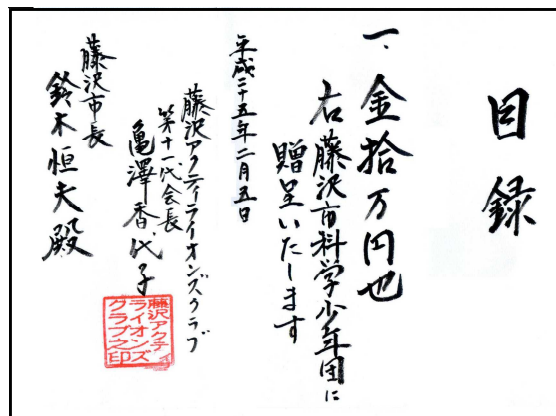 目録
一、金拾万円也
右藤沢市科学少年団に
贈呈いたします
平成二十五年二月五日
藤沢アクティライオンズクラブ
第十一代会長
亀澤香代子
藤沢アクティ
ライオンズ
クラブ之印
藤沢市長
鈴木恒夫殿